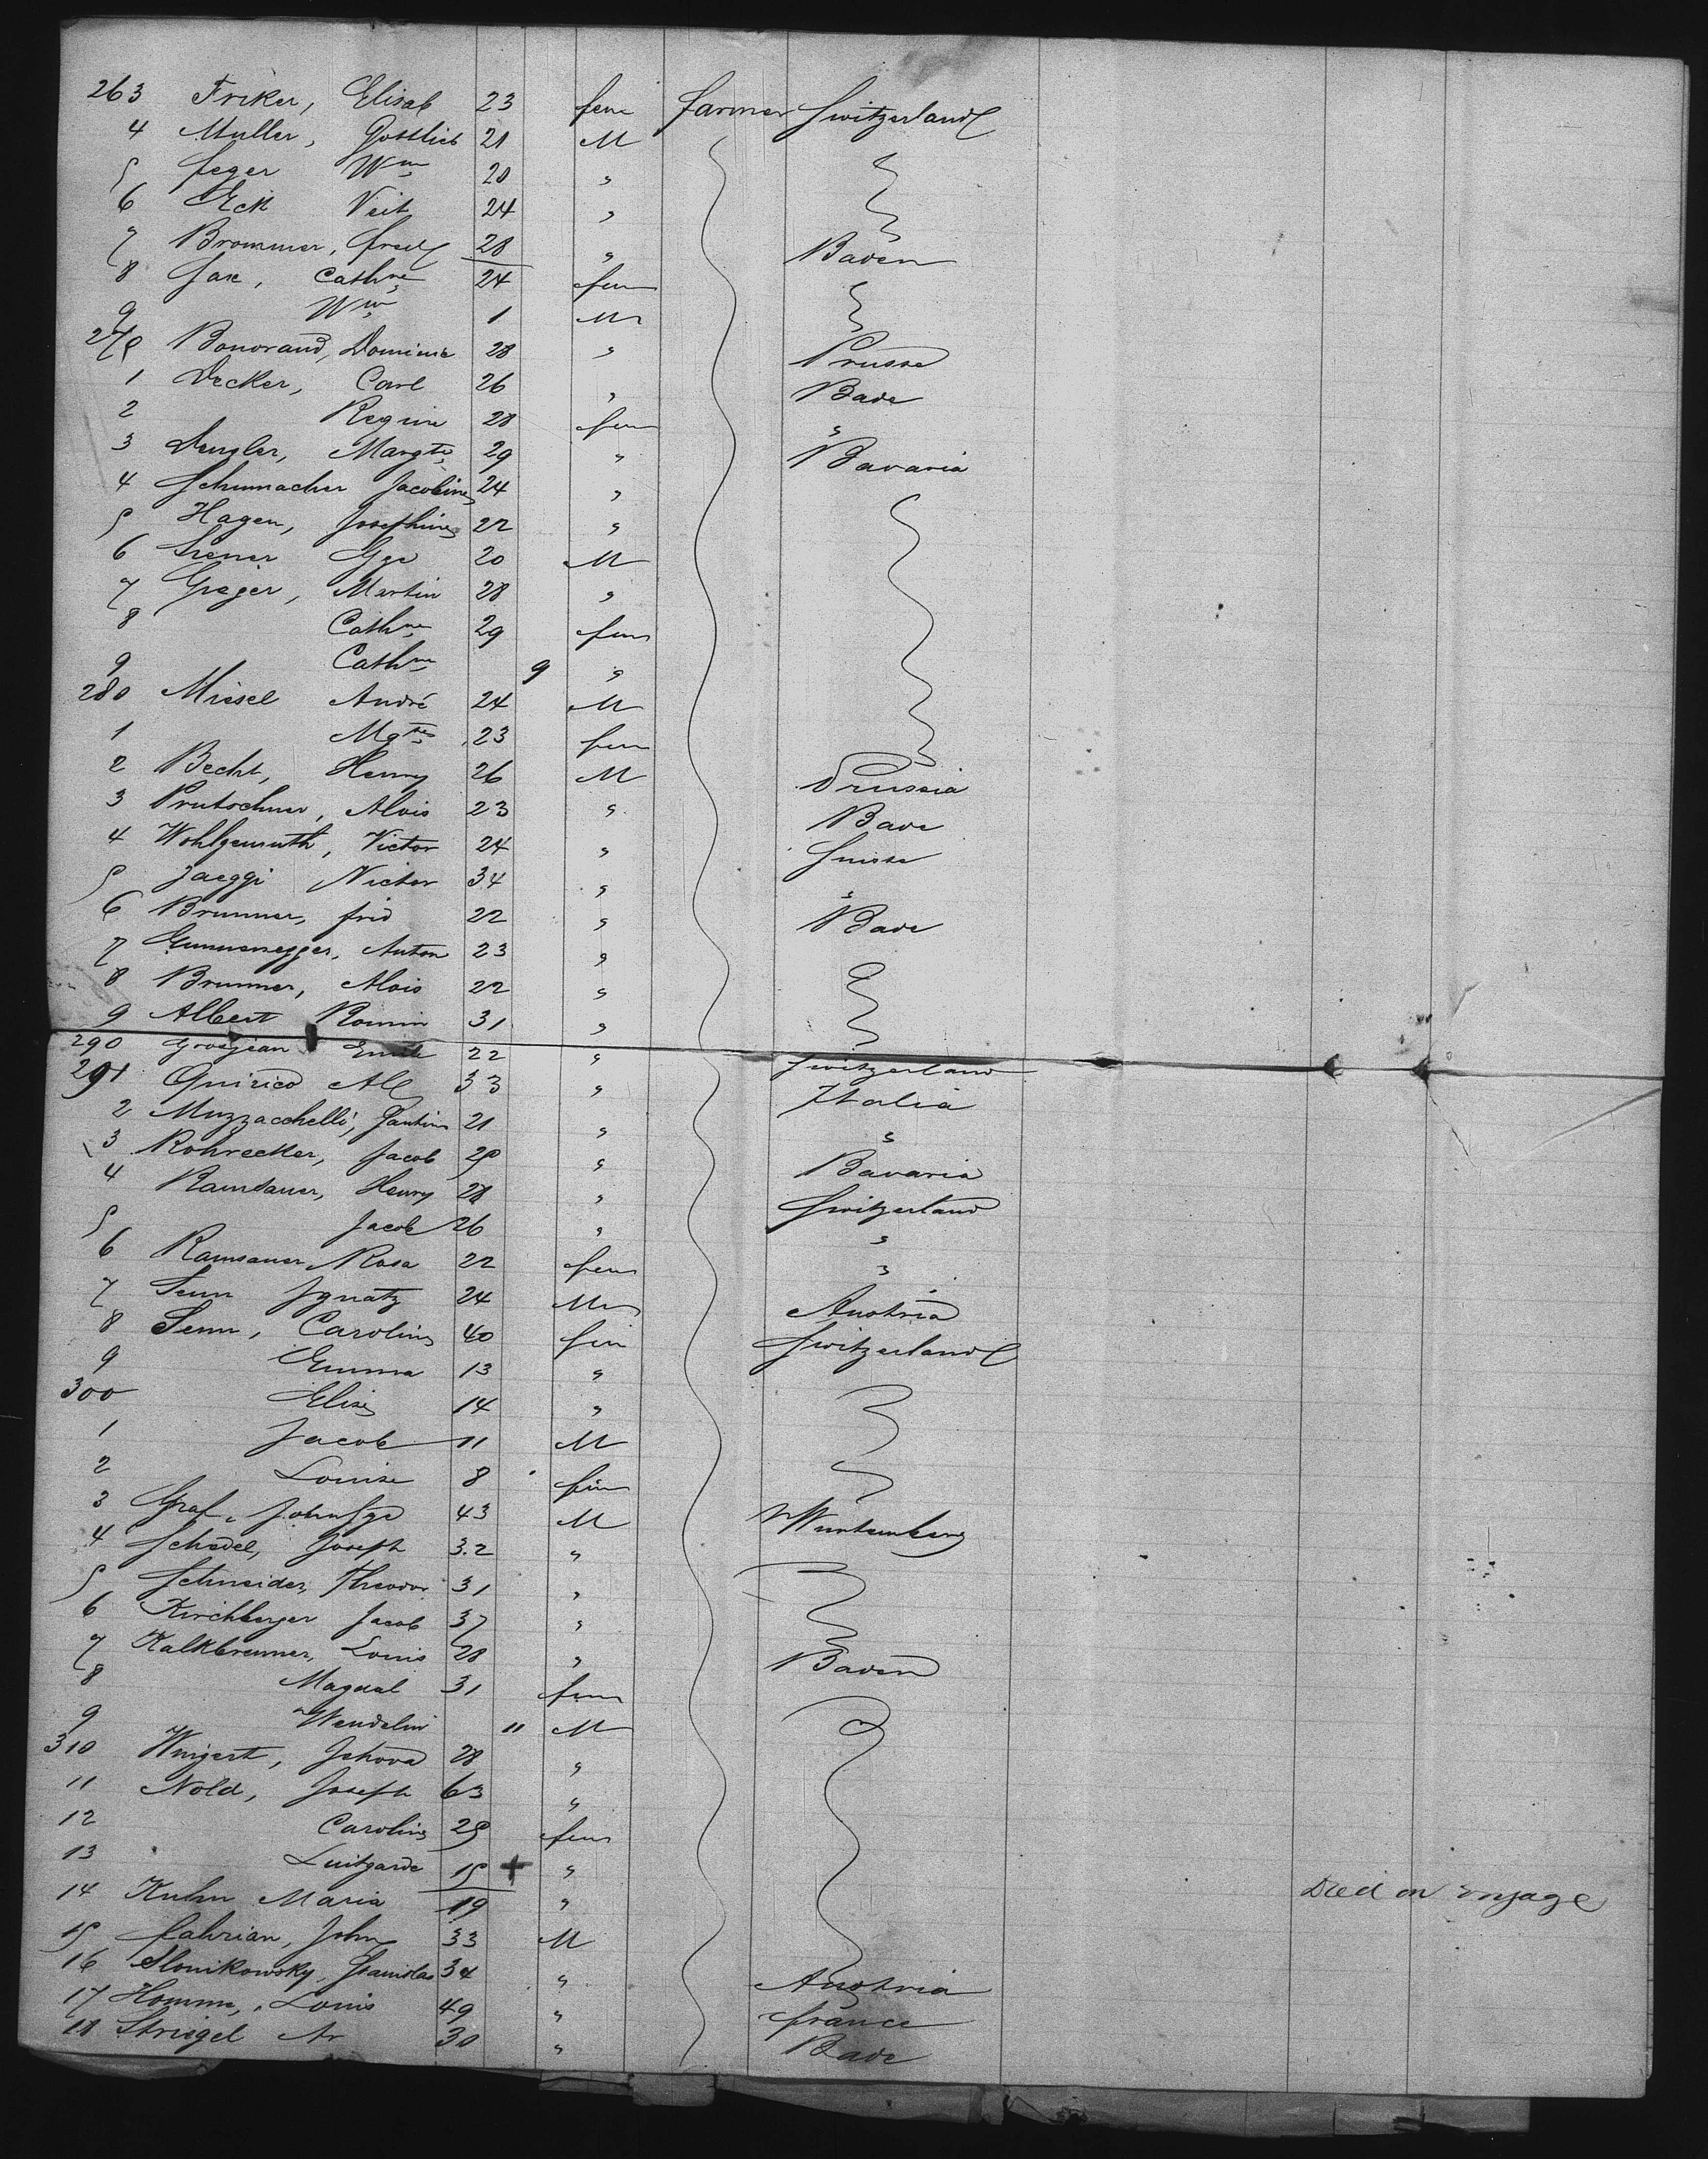 263 Friker, Elisab 23 fem farmer Switzerland
4 Muller, Gottlieb 21 M
5 Jeger Wm 20 "
6 Eck Veit 24 "
7 Brommer, Fred 28 " Baden
8 Jax, Cathne 24 fem
9 Wm 1 M
270 Bonorand, Dominic 28 " Prusse
1 Decker, Carl 26 " Bade
2 Regine 28 fem "
3 Dengler, Margte 29 " Bavaria
4 Schumacher Jacobine 24 "
5 Hagen, Josephine 22 "
6 Gge 20 M
7 Greger, Martin 28 "
8 Cathne 29 fem
9 Cathne 9 "
280 Missel André 24 M
1 Mgte 23 fem
2 Becht, Henry 26 M Prussia
3 Prutschner, Alois 23 " Bade
4 Wohlgemuth, Victor 24 " Suisse
5 Jaeggi Victor 34 " "
6 Brunner, frid 22 " Bade
7 Gummenegger, Anton 23 "
8 Brunner, Alois 22 "
9 Albert Romin 31 "
290 Grosjean Emile 22 " Switzerland
291 Quirico Al 33 " Italia
2 Muzzacchelli, Santino 21 " "
3 Rohrecker, Jacob 25 " Bavaria
4 Ramsauer, Henry 28 " Switzerland
5 Jacob 26 " "
6 Ramsauer Rosa 22 fem "
7 Senn Ignatz 24 M Austria
8 Senn, Caroline 40 fem Switzerland
9 Emma 13 "
300 Elise 14 "
1 Jacob 11 M
2 Louise 8 fem
3 Graf, John Gge 43 M Wurtemberg
4 Schedel, Joseph 32 "
5 Schneider, Theodor 31 "
6 Kirchberger Jacob 37 "
7 Kalkbrenner, Louis 28 " Baden
8 Magdal 31 fem
9 Wendelin 11 M
310 Wingert, 28 "
11 Nold, Joseph 63 "
12 Caroline 25 fem
13 Luitgarde 15 + " Died on voyage
14 Kuhn Maria 19 "
15 John 33 M
16 Slonikowsky, Stanislas 34 " Austria
17 Homme, Louis 49 " france
18 Striegel Ar 30 " Bade